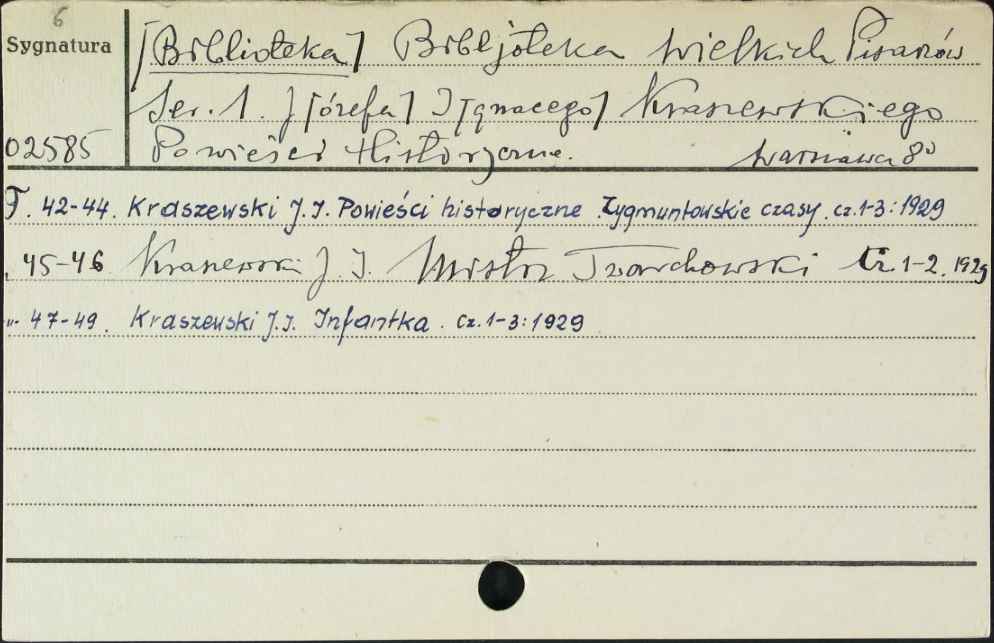 6
Sygnatura [Biblioteka] Bibljoteka Wielkich Pisarzów
Ser. 1. J[ózefa] I[gnacego] Kraszewskiego
02585 Powieści Historyczne. Warszawa 8º
T. 42-44. Kraszewski J.I. Powieści historyczne. Zygmuntowskie czasy. cz. 1-3: 1929
„ 45-46 Kraszewski J. I. Mistrz Twardowski Cz. 1-2. 1929
„ 47-49. Kraszewski J.I. Infantka. Cz. 1-3: 1929